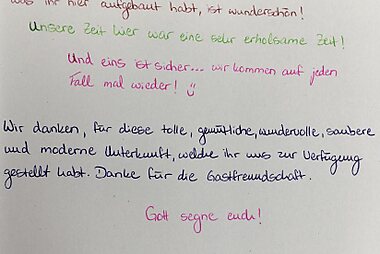 was ihr hier aufgebaut habt, ist wunderschön!
Unsere Zeit hier war eine sehr erholsame Zeit!
Und eins ist sicher... wir kommen auf jeden
Fall mal wieder! ☺
Wir danken, für diese tolle, gemütliche, wundervolle, saubere
und moderne Unterkunft, welche ihr uns zur Verfügung
gestellt habt. Danke für die Gastfreundschaft.
Gott segne euch!